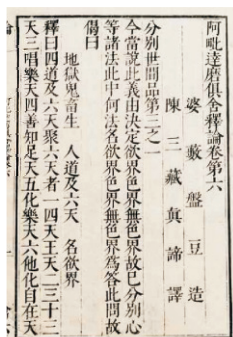 阿毗達磨俱舍釋論卷第六
婆藪盤豆造
陳三藏真諦譯
分別世間品第三之一
今當說此義由決定欲界色界無色界故已分別心
等諸法此中何法名欲界色界無色界爲答此問故
偈曰
地獄鬼畜生　人道及六天　名欲界
釋曰四道及六天聚六天者一四天王天二三十三
天三唱樂天四善知足天五化樂天六他化自在天